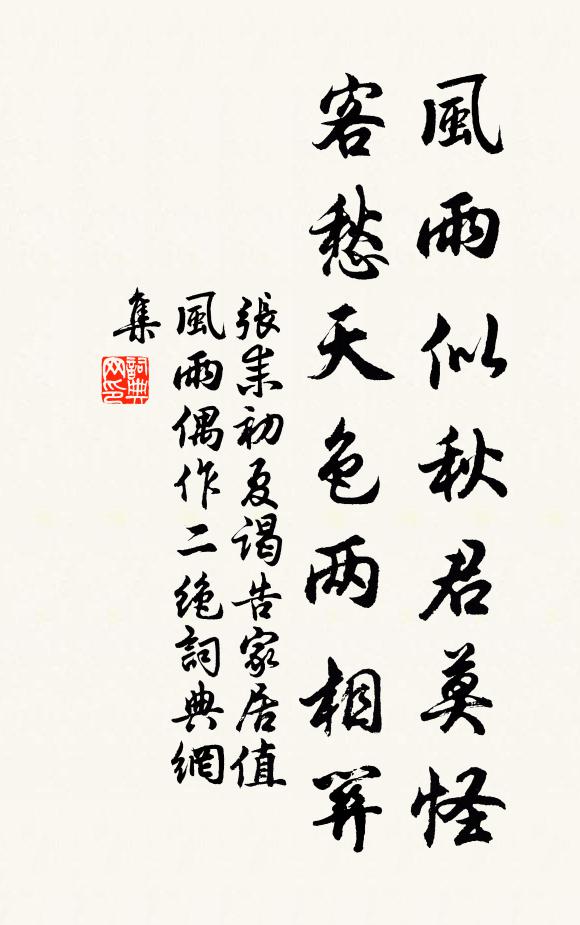 風雨似秋君莫怪
客愁天色两相關
張耒初夏謁告家居值
風雨偶作二絶詞典網
集
詞典
网印